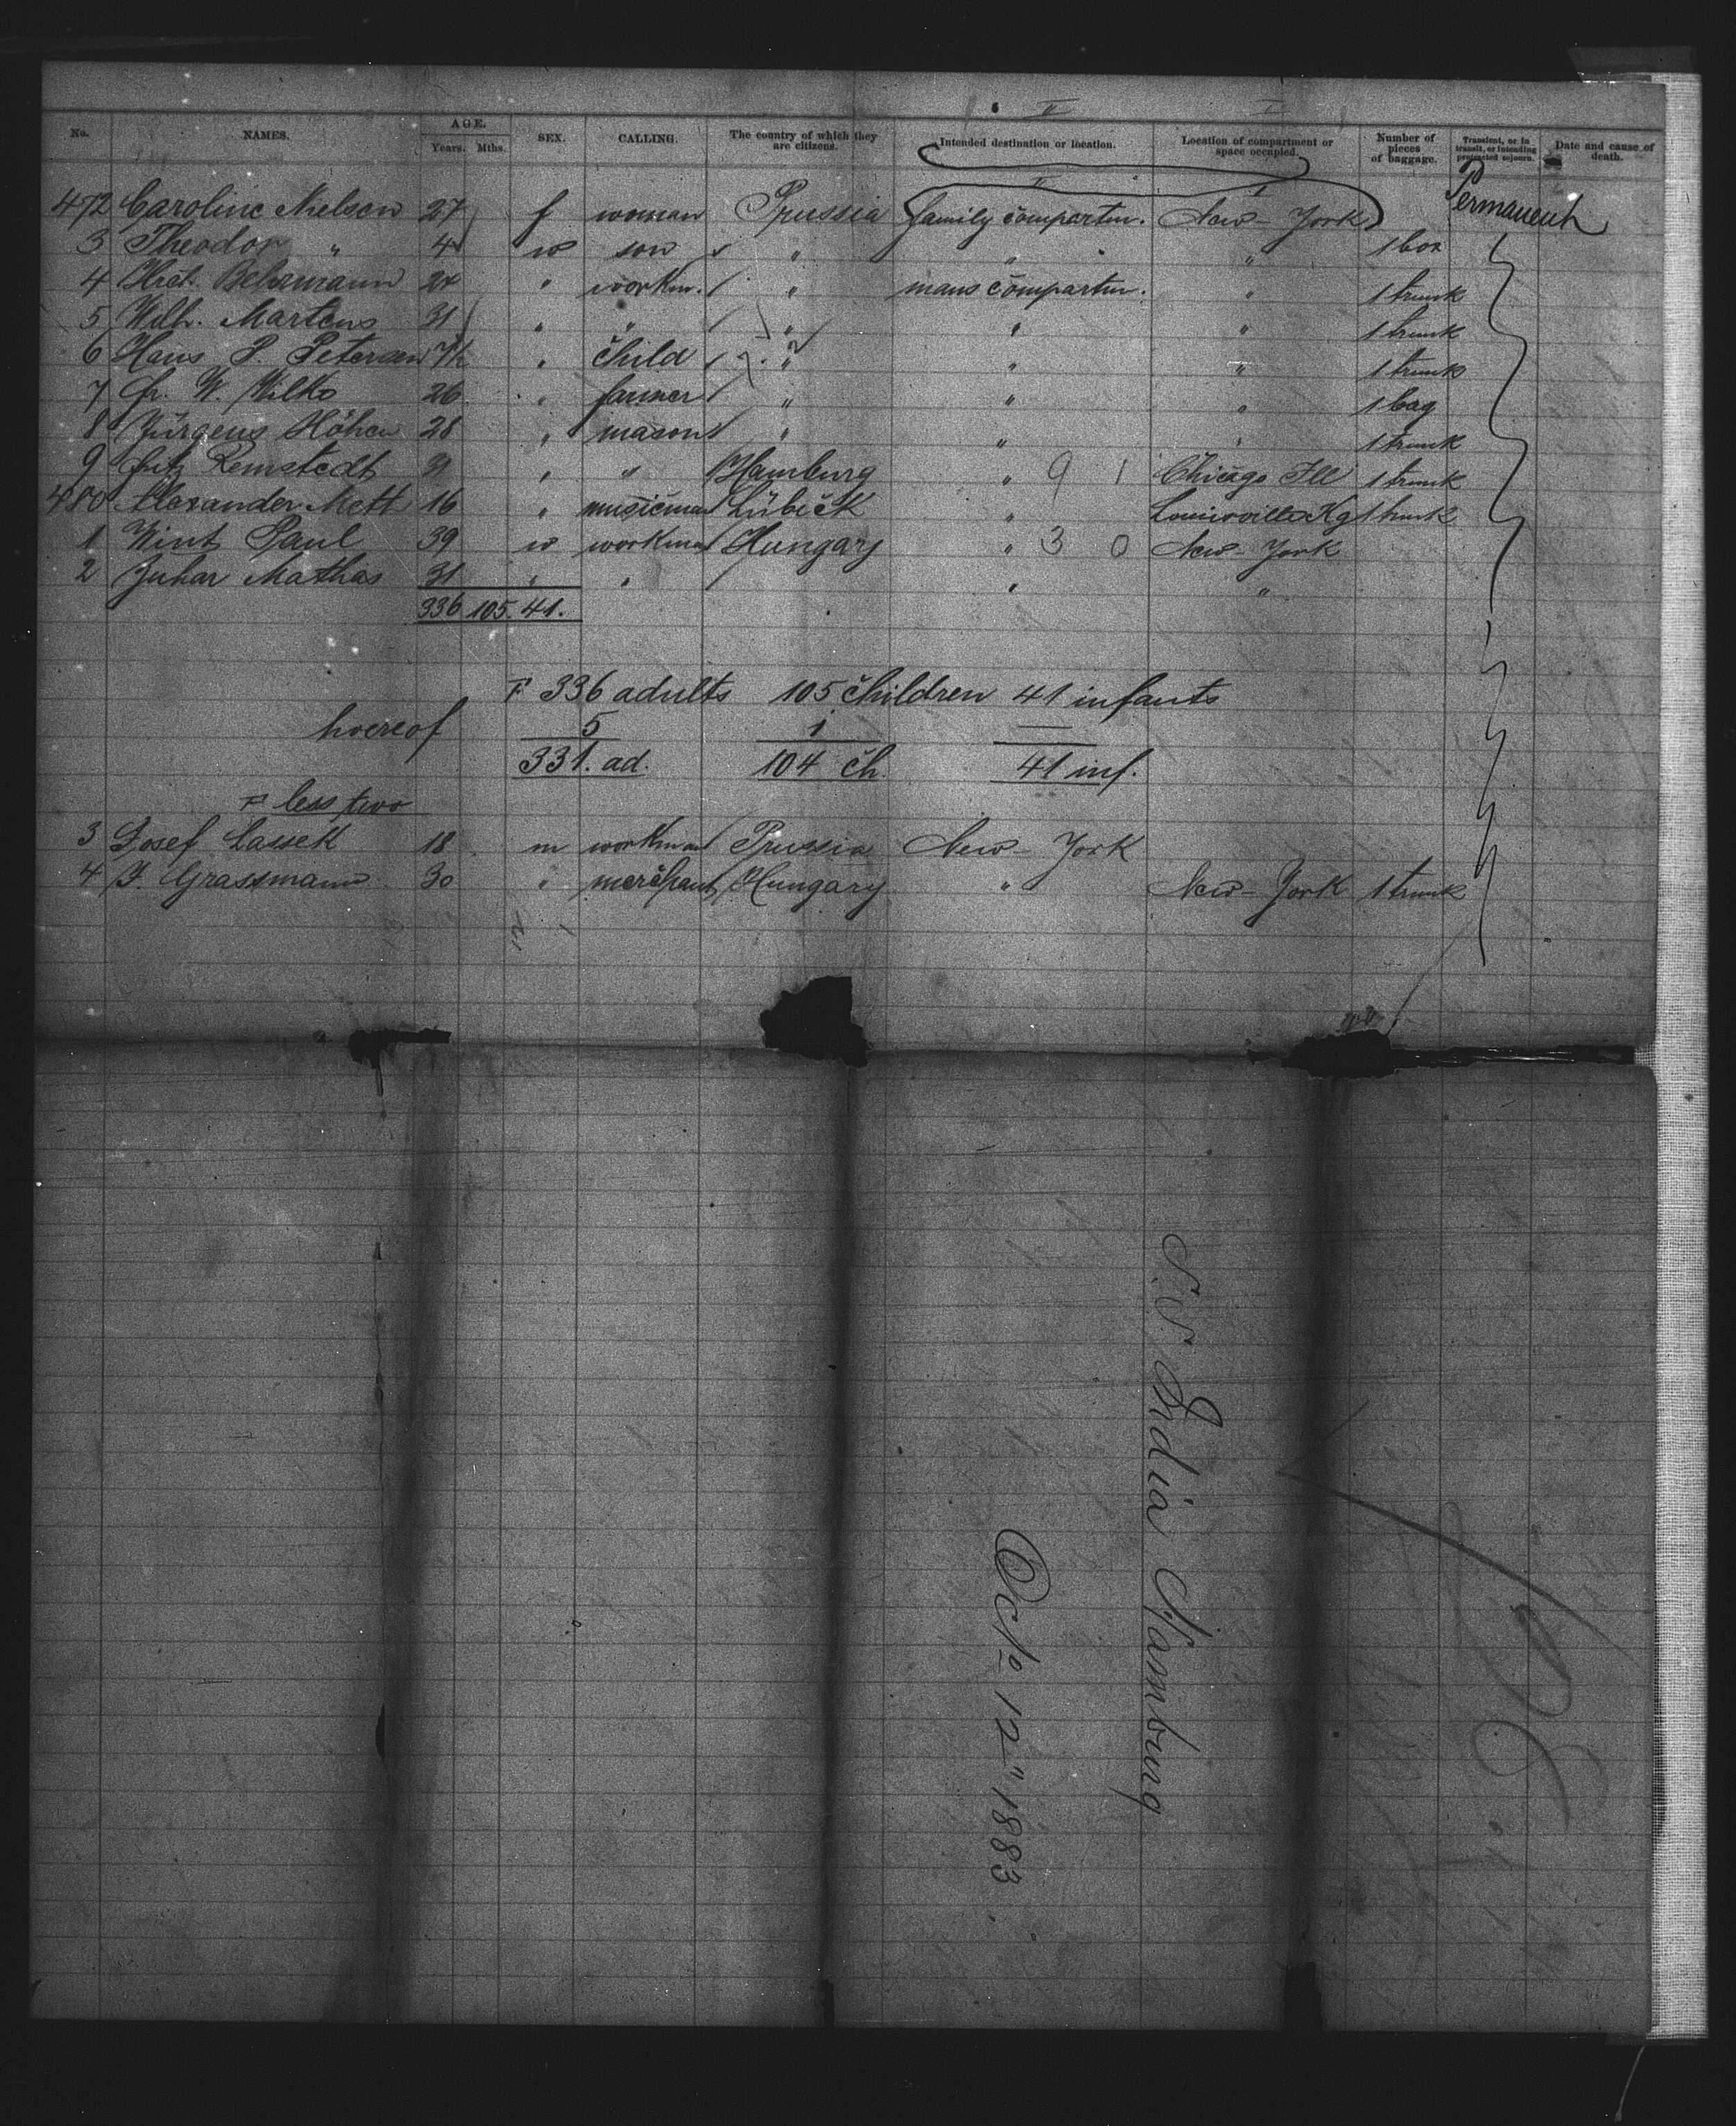 No. NAMES. AGE. Years. Mths. SEX. CALLING. The country of which they are citizens. Intended destination or location. Location of compartment or space occupied. Number of pieces of baggage. Transient, or in transit, or intending protracted sojourn. Date and cause of death.
II I
472 Caroline Nielsen 27 f woman Prussia family compartm. New-York Permanent
3 Theodor " 4 m son " " " 1 box
4 Behrmann 24 " workm. " mans compartm. " 1 trunk
5 Wilh. Martens 31 " " " " " 1 trunk
6 Hans P. Petersen " child " " " 1 trunk
7 Fr. W. Wilko 26 " farmer " " " 1 bag
8 Jürgens Höhen 28 " mason " " " 1 trunk
9 Fritz Remstedt 31 " " Hamburg " 9 1 Chicago Ill 1 trunk
480 Alexander Mett 16 " Lübeck " Louisville Ky 1 trunk
1 Wint Paul 39 m workman Hungary " 3 0 New-York
2 Juhar Mathas 31 " " " "
336 105. 41.
F 336 adults 105 children 41 infants
hereof 5 1 —
331. ad. 104 ch. 41 inf.
F less two
3 Josef Lassek 18 m workman Prussia New-York
4 J. Grassmann 30 " merchant Hungary " New-York 1 trunk
S.S. India Hamburg
Octo 12" 1883.